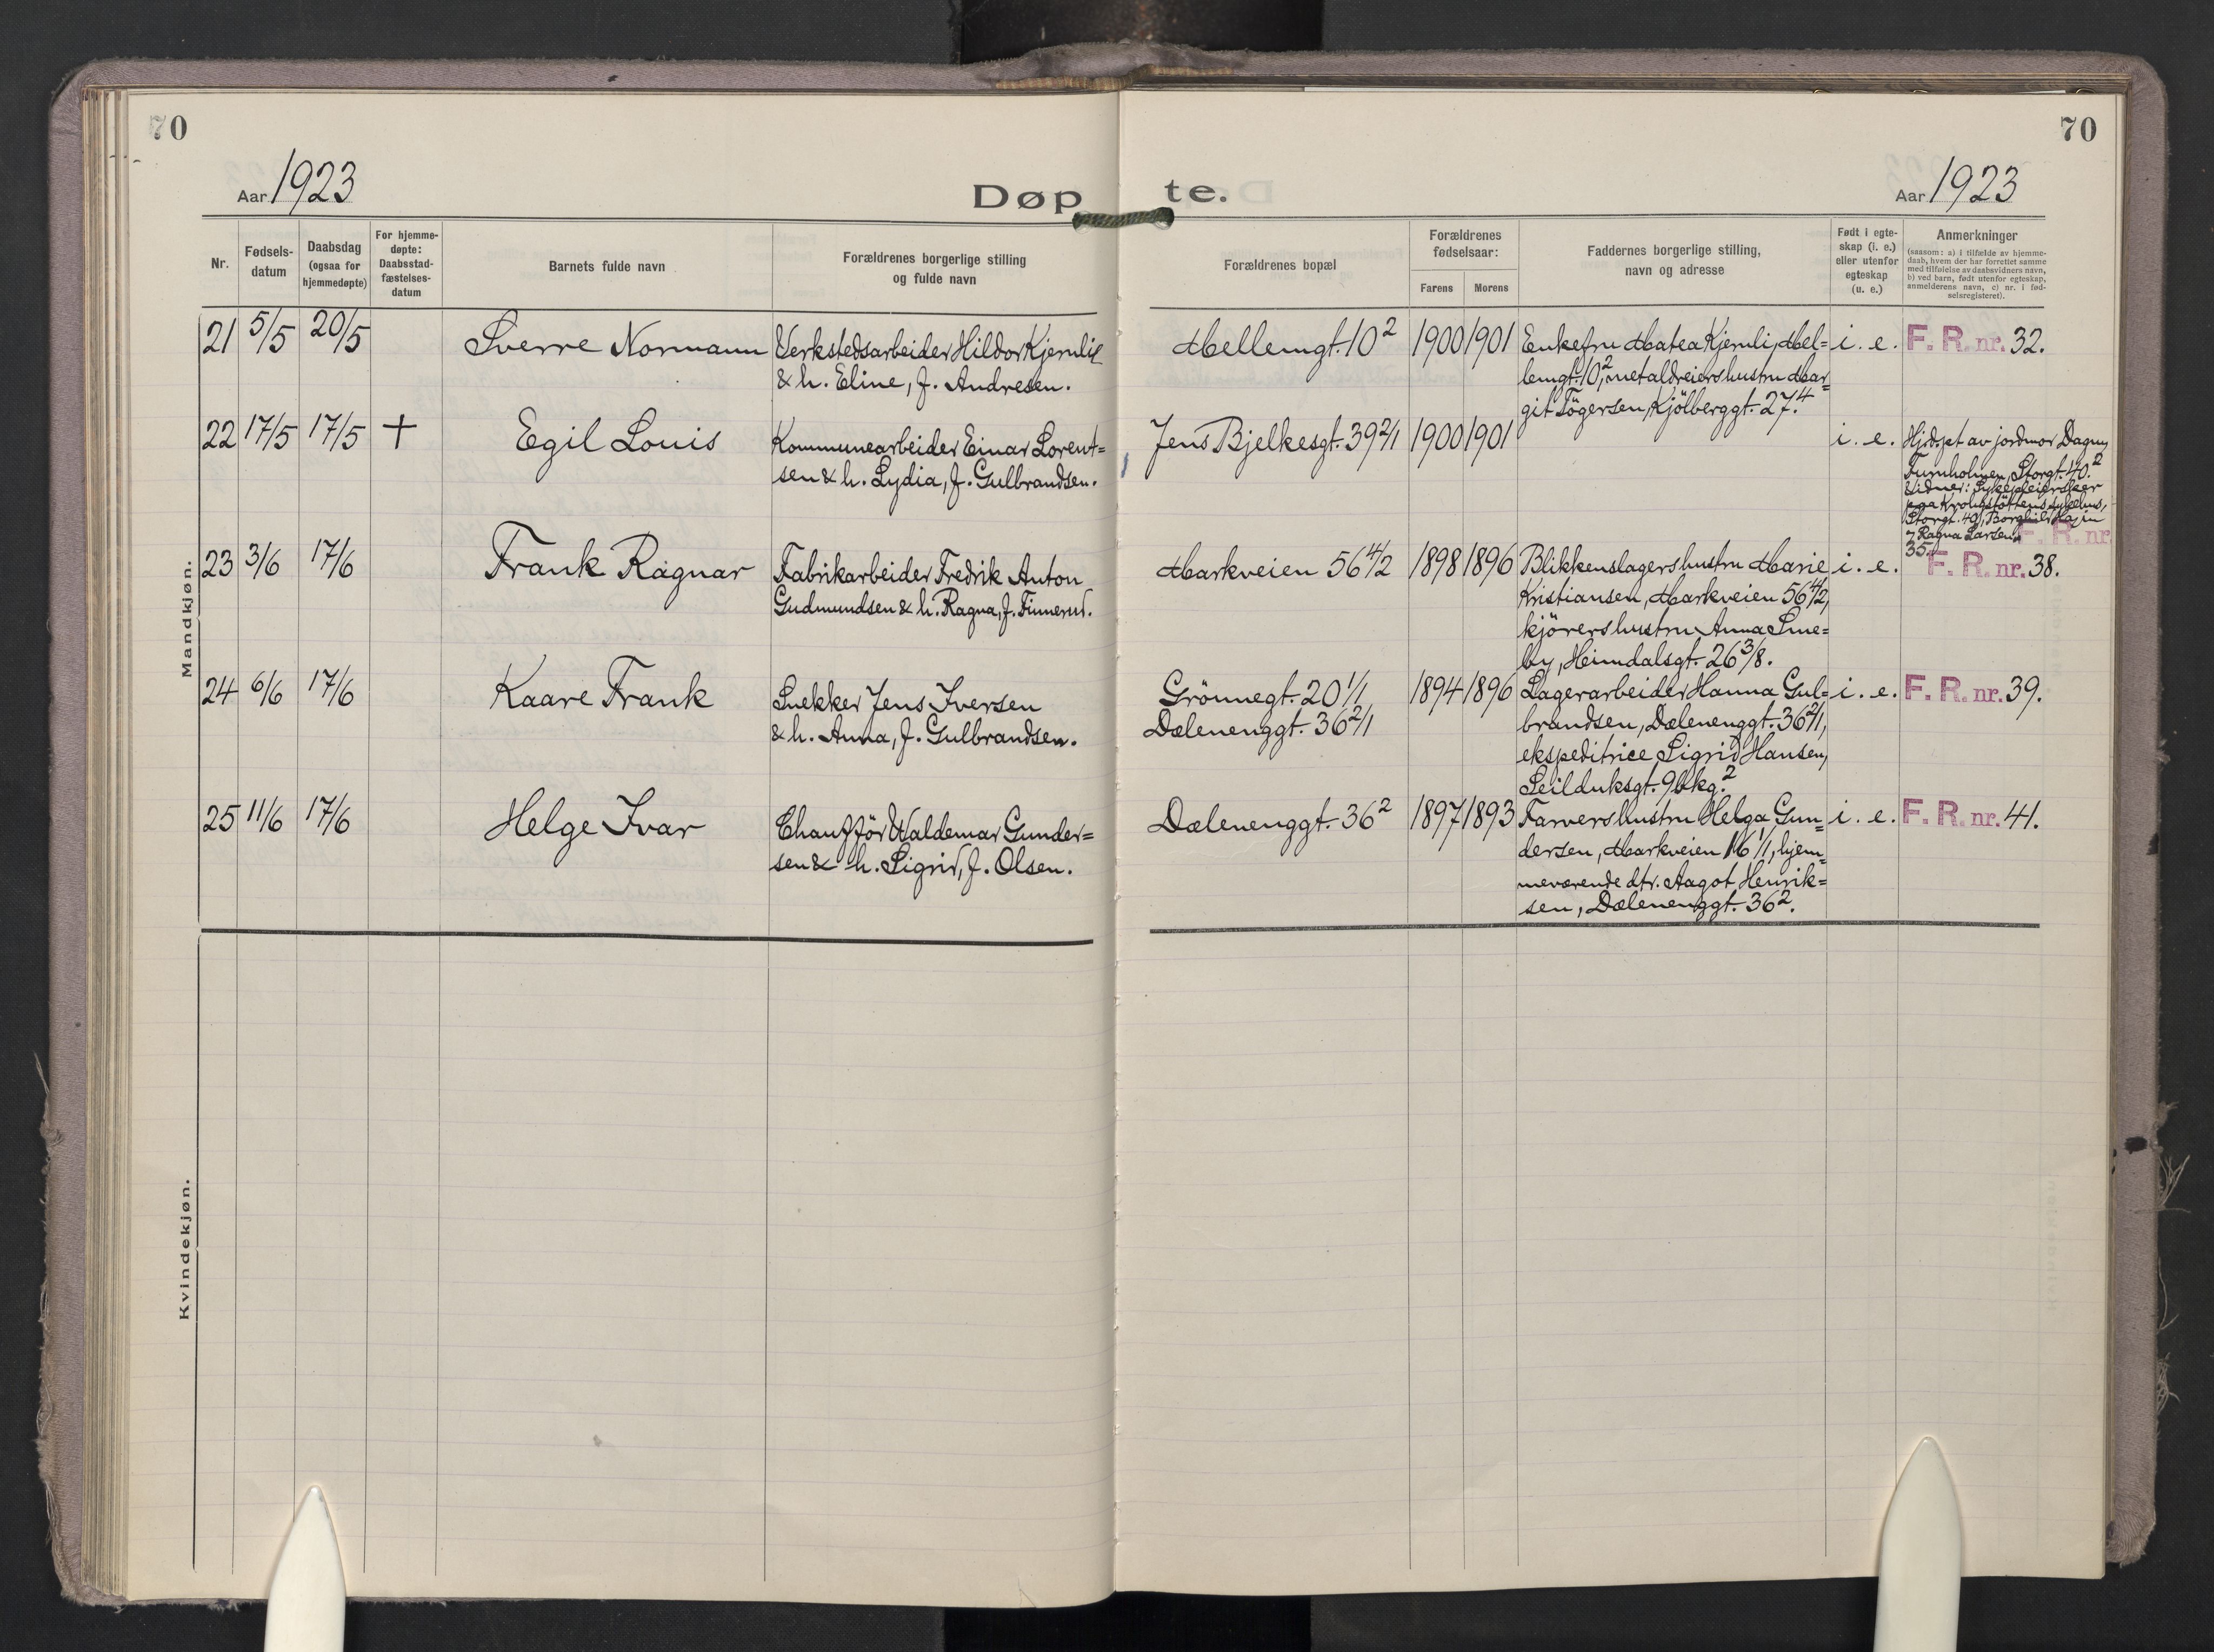 70
70
Aar 1923
Døpte.
Aar 1923
Nr.
Fødsels-
datum
Daabsdag
(ogsaa for
hjemmedøpte)
For hjemme-
døpte:
Daabsstad-
fæstelses-
datum
Barnets fulde navn
Forældrenes borgerlige stilling
og fulde navn
Forældrenes bopæl
Forældrenes
fødselsaar:
Farens
Morens
Faddernes borgerlige stilling,
navn og adresse
Født i egte-
skap (i. e.)
eller utenfor
egteskap
(u. e.)
Anmerkninger
(saasom: a) i tilfælde av hjemme-
daab, hvem der har forrettet samme
med tilføielse av daabsvidners navn,
b) ved barn, født utenfor egteskap,
anmelderens navn, c) nr. i fød-
selsregisteret).
Mandkjøn.
21 5/5 20/5 Sverre Normann Verkstedsarbeider Hildor Kjernlie
& h. Eline, f. Andresen.
Møllemgt. 10² 1900 1901 Enkefru Matea Kjernli, Møl=
lemgt. 10², metaldreiershustru Mar=
git Tögersen, Kjölberggt. 27.⁴
i. e. F. R. nr. 32.
22 17/5 17/5 + Egil Louis Kommunearbeider Einar Lorent=
sen & h. Lydia, f. Gulbrandsen.
Jens Bjelkesgt. 39 2/1 1900 1901 i. e. Hjdøpt av jordmor Dagny
Furuholmen, Storgt. 40.²
Vidner: Sykepleiersker
Storgt. 40, Borghild
Ragna Larsen
F. R. nr.
35.
23 3/6 17/6 Frank Ragnar Fabrikarbeider Fredrik Anton
Gudmundsen & h. Ragna, f. Finnerud.
Markveien 56 4/2 1898 1896 Blikkenslagershustru Marie
Kristiansen, Markveien 56 4/2,
kjörershustru Anna Sme=
by, Heimdalsgt. 26 3/8.
i. e. F. R. nr. 38.
24 6/6 17/6 Kaare Frank Snekker Jens Iversen
& h. Anna, f. Gulbrandsen.
Grönnegt. 20 1/1
Dælenenggt. 36 2/1
1894 1896 Lagerarbeider Hanna Gul=
brandsen, Dælenenggt. 36 2/1,
ekspeditrice Sigrid Hansen,
Seilduksgt. 9b kg.²
i. e. F. R. nr. 39.
25 11/6 17/6 Helge Ivar Chauffør Waldemar Gunder=
sen & h. Sigrid, f. Olsen.
Dælenenggt. 36² 1897 1893 Farvershustru Helga Gun=
dersen, Markveien 16 1/1, hjem=
meværende dtr. Aagot Henrik=
sen, Dælenenggt. 36².
i. e. F. R. nr. 41.
Kvindekjøn.